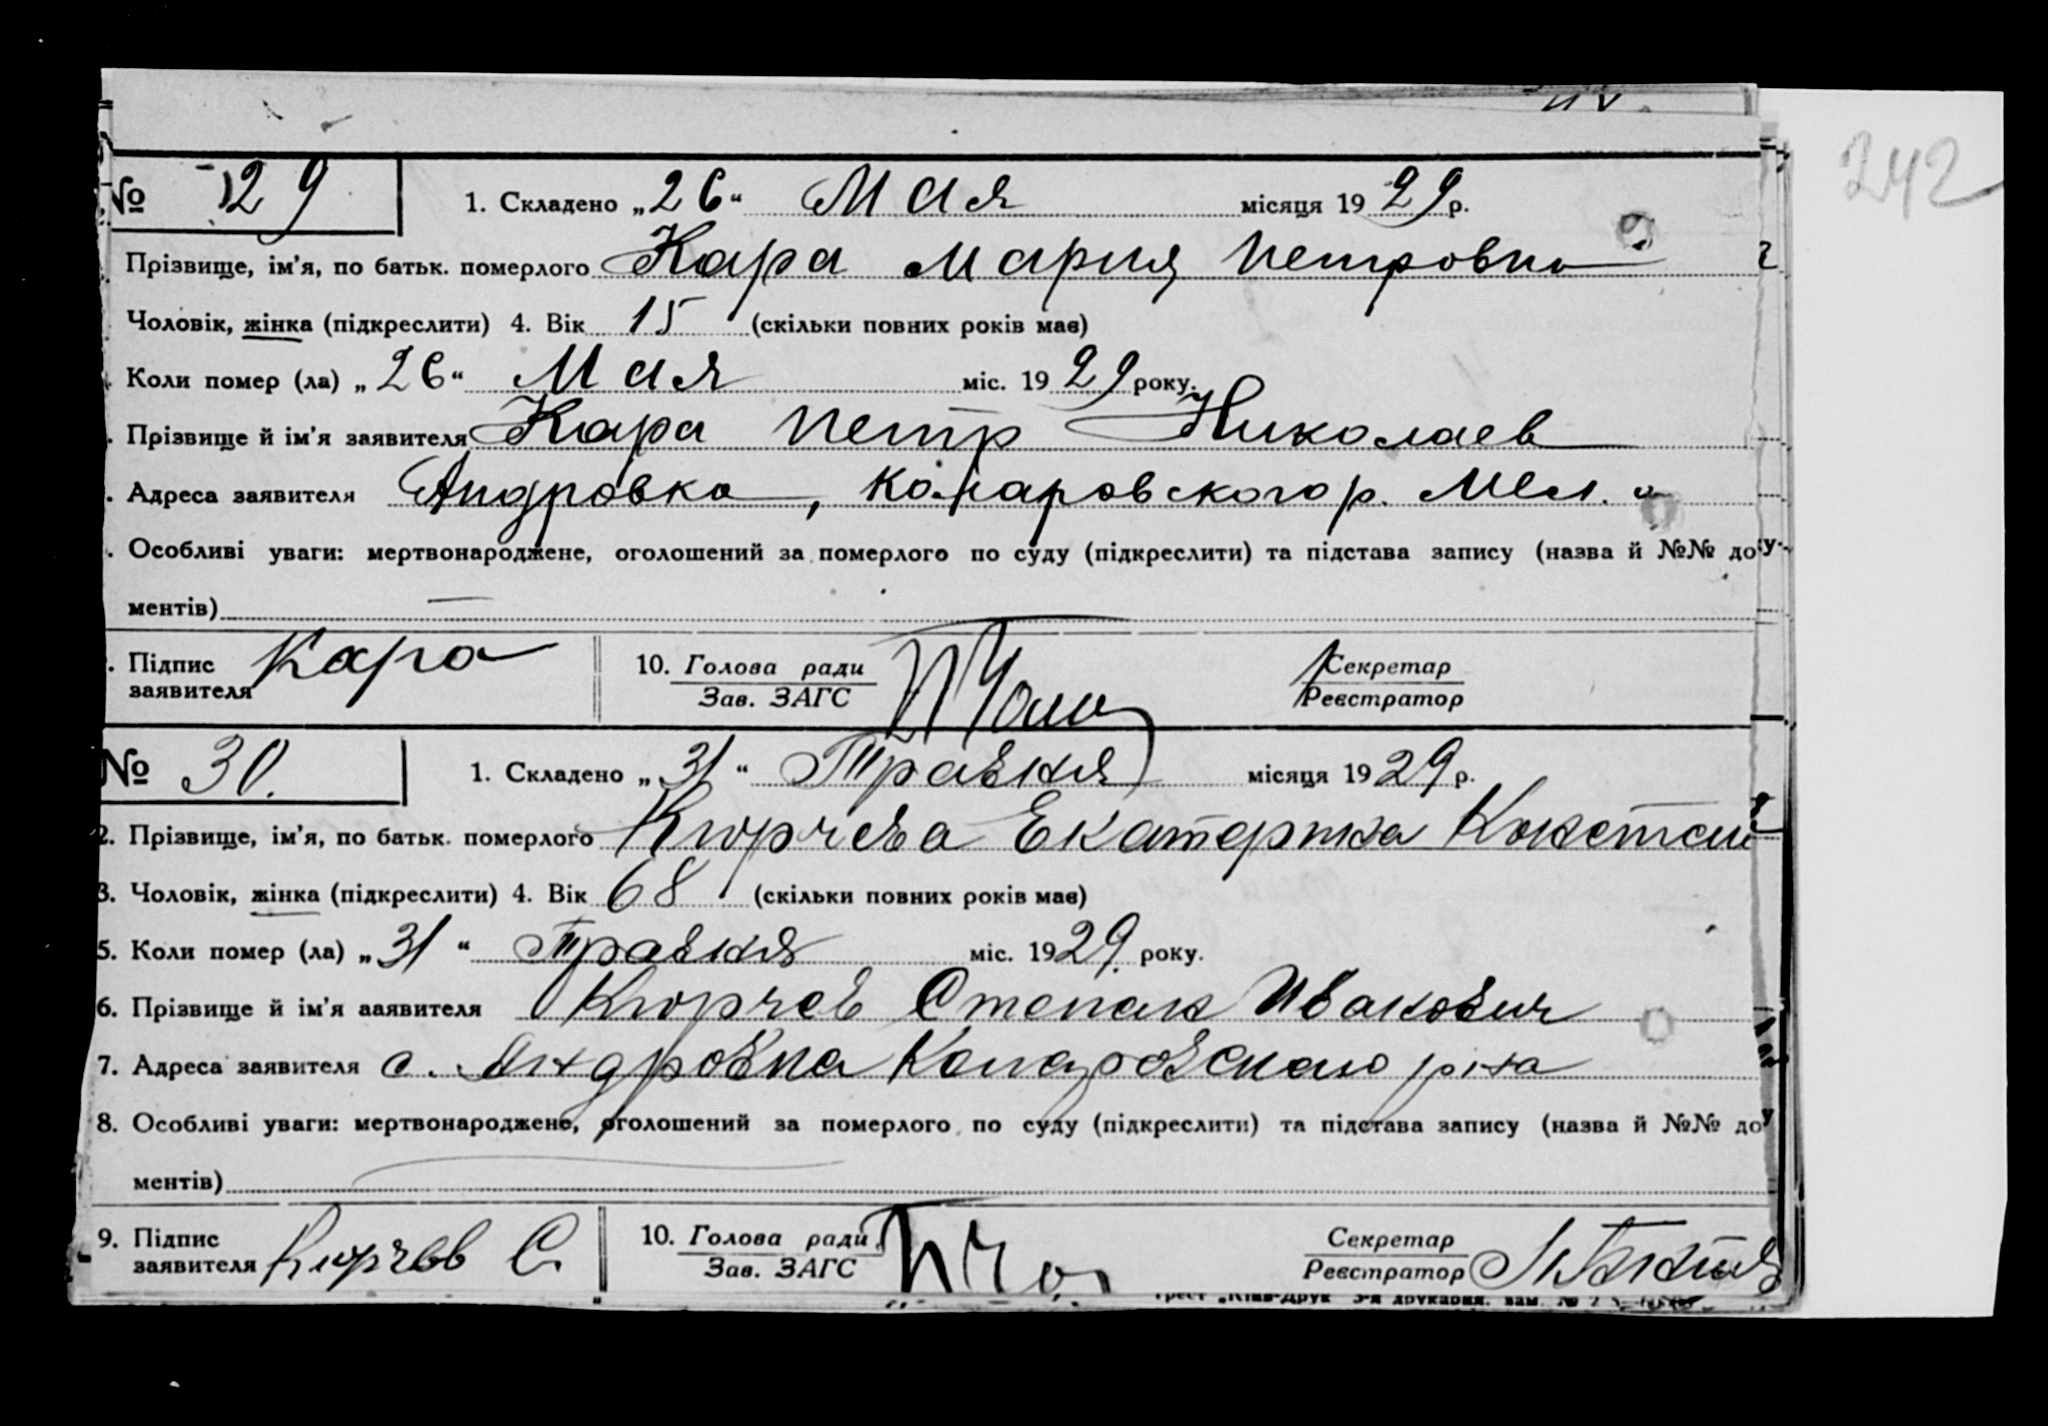 242
№ 29 1. Складено „26“ Мая місяця 1929 р.
Прізвище, ім'я, по батьк. померлого Кара Мария Петровна
Чоловік, жінка (підкреслити) 4. Вік 15 (скільки повних років має)
Коли помер (ла) „26“ Мая міс. 1929 року.
Прізвище й ім'я заявителя Кара Петр Николаев
Адреса заявителя Андровка, Комаровского р. Мел. о
Особливі уваги: мертвонароджене, оголошений за померлого по суду (підкреслити) та підстава запису (назва й №№ доку-
ментів) —
Підпис заявителя Кара 10. Голова ради Зав. ЗАГС Секретар Реєстратор
№ 30. 1. Складено „31“ Травня місяця 1929 р.
2. Прізвище, ім'я, по батьк. померлого Кюрчева Екатерина Констан
3. Чоловік, жінка (підкреслити) 4. Вік 68 (скільки повних років має)
5. Коли помер (ла) „31“ Травня міс. 1929. року.
6. Прізвище й ім'я заявителя Кюрчев Степан Иванович
7. Адреса заявителя с. Андровка р-на
8. Особливі уваги: мертвонароджене, оголошений за померлого по суду (підкреслити) та підстава запису (назва й №№ доку
ментів)
9. Підпис заявителя Кюрчев С. 10. Голова ради Зав. ЗАГС Секретар Реєстратор